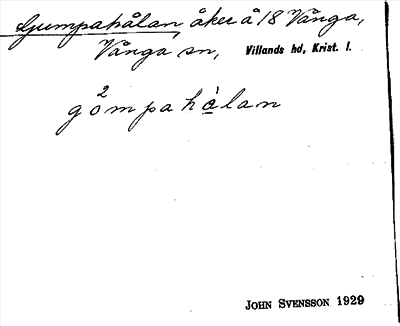 Gjumpahålan, åker å 18 Vånga,
Vånga sn, Villands hd, Krist. l.
2
gåmpahà̲lan
JOHN SVENSSON 1929